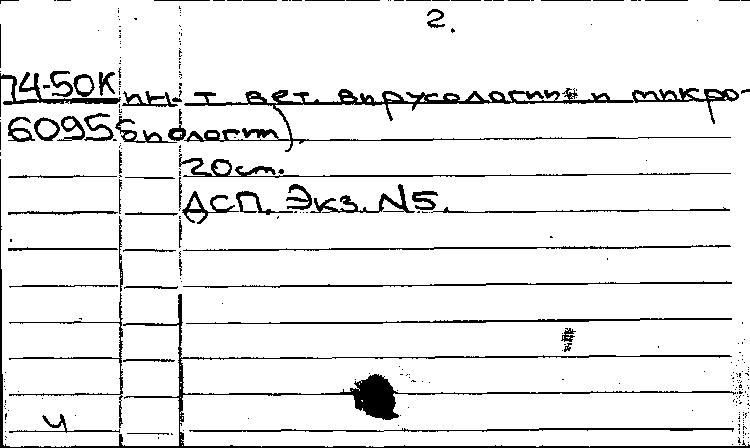 2.
74-50К ин-т вет. вирусологии и микро-
6095 биологии).
20 см.
ДСП. Экз. N5.
ч